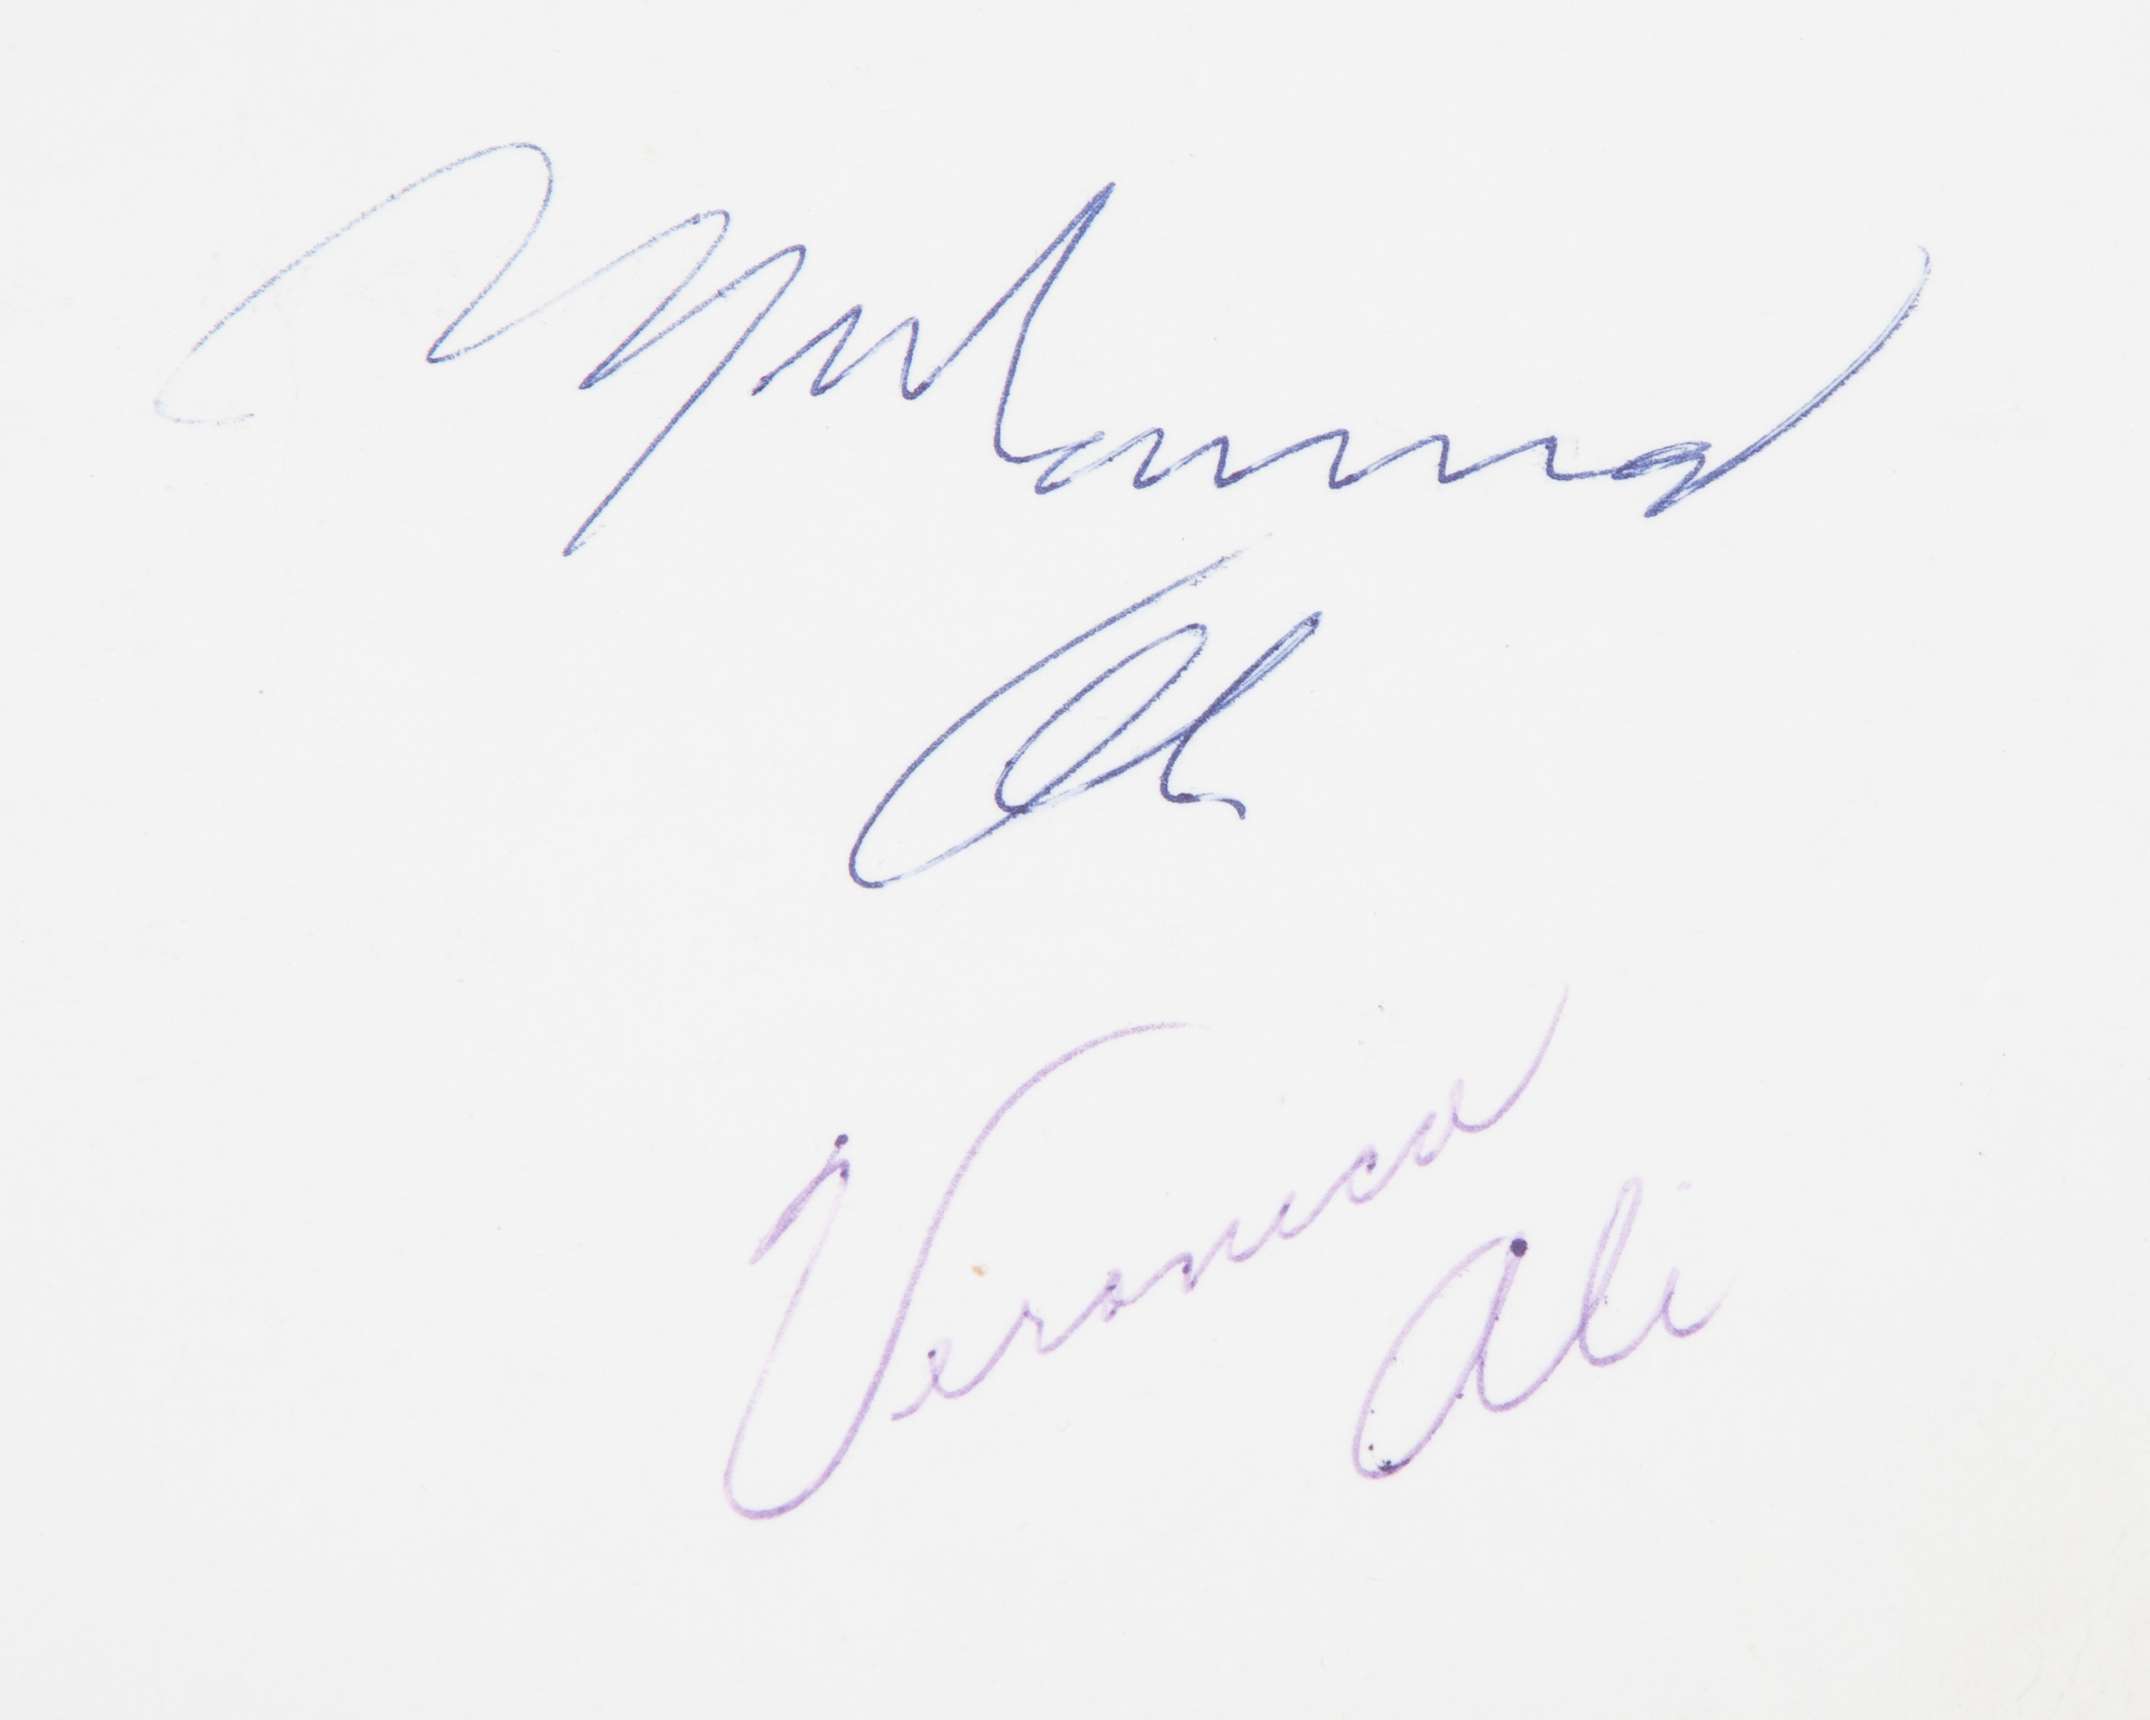 Muhammad
Ali
Veronica
Ali